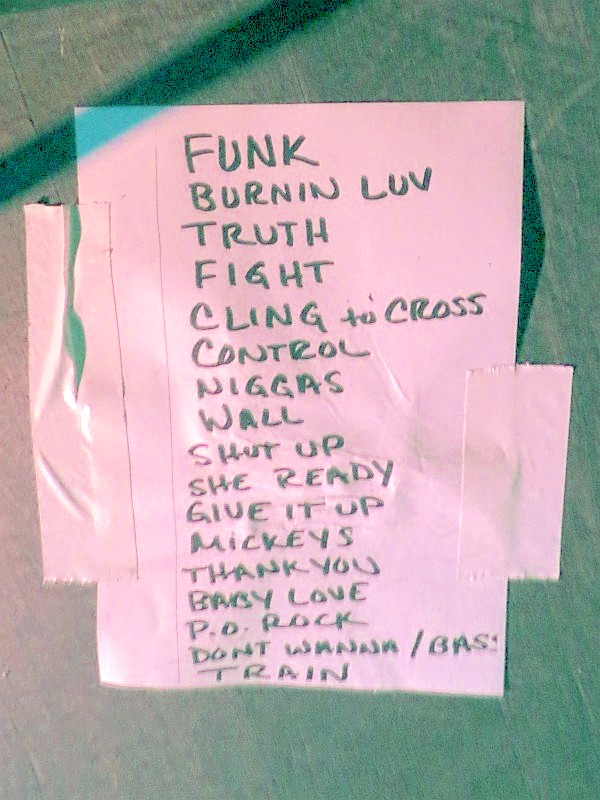 FUNK
BURNIN LUV
TRUTH
FIGHT
CLING to CROSS
CONTROL
NIGGAS
WALL
SHUT UP
SHE READY
GIVE IT UP
MICKEYS
THANK YOU
BABY LOVE
P.O. ROCK
DONT WANNA / BAS
TRAIN